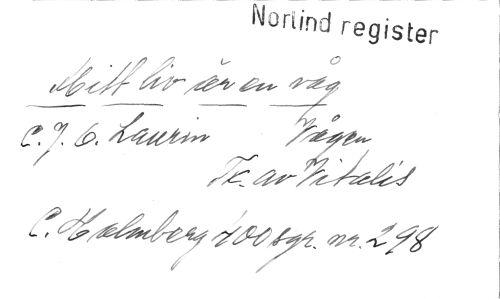 Norlind register
Mitt liv är en våg
C. J. O. Laurin Vågen
Tk. av Vitalis
C. Holmberg 400 sgr. nr. 298